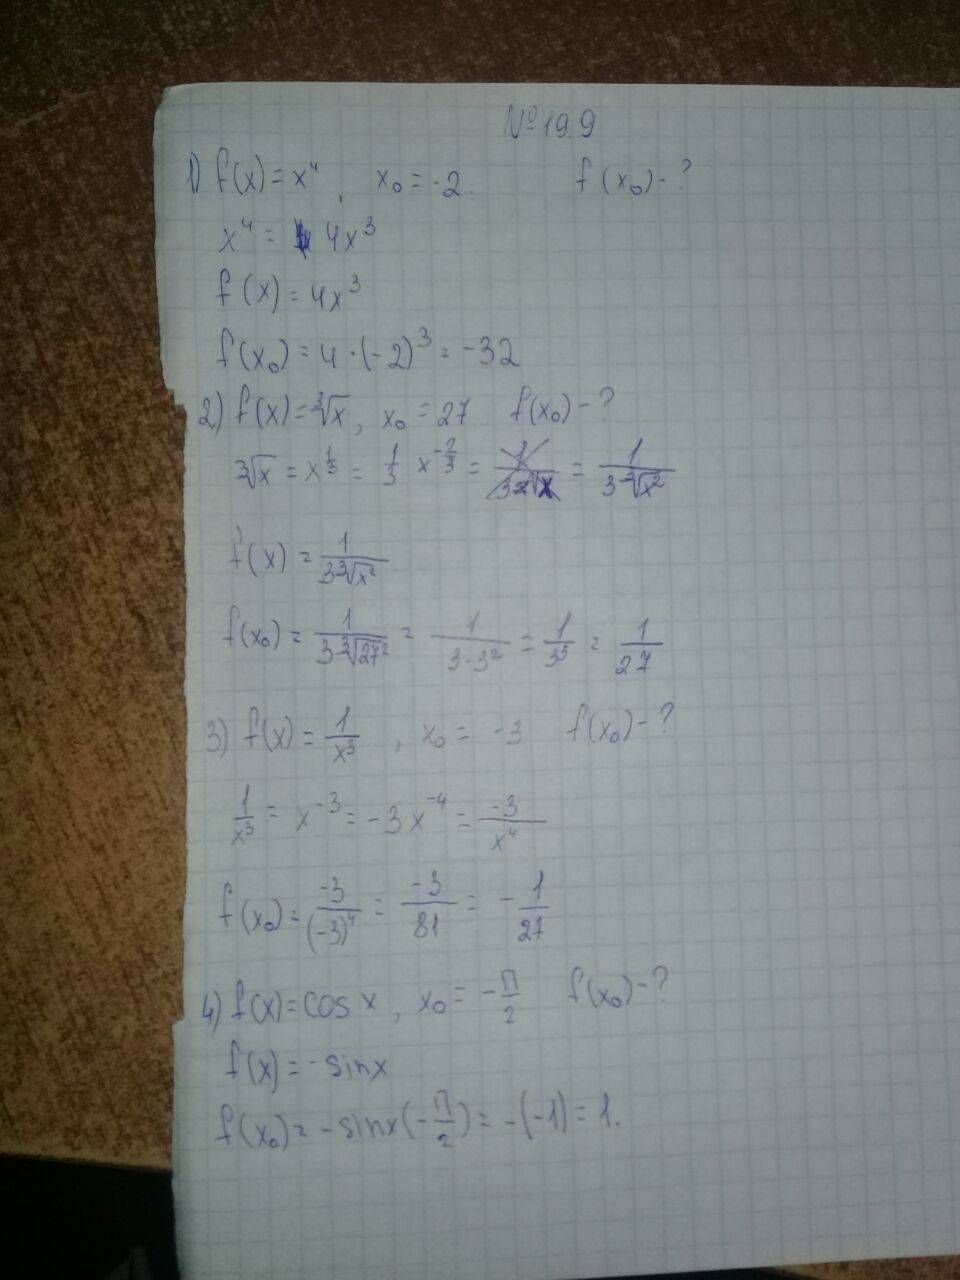 № 19.9
1) f(x) = x⁴, x₀ = -2. f(x₀) - ?
x⁴ = 4x³
f(x) = 4x³
f(x₀) = 4 · (-2)³ = -32
2) f(x) = ∛x, x₀ = 27 f(x₀) - ?
∛x = x^(1/3) = 1/3 x^(-2/3) = = 1/(3·∛x²)
f(x) = 1/(3∛x²)
f(x₀) = 1/(3·∛27²) = 1/(3·3²) = 1/3³ = 1/27
3) f(x) = 1/x³, x₀ = -3 f(x₀) - ?
1/x³ = x⁻³ = -3x⁻⁴ = -3/x⁴
f(x₀) = -3/(-3)⁴ = -3/81 = -1/27
4) f(x) = cos x, x₀ = -П/2 f(x₀) - ?
f(x) = -sinx
f(x₀) = -sinx(-П/2) = -(-1) = 1.